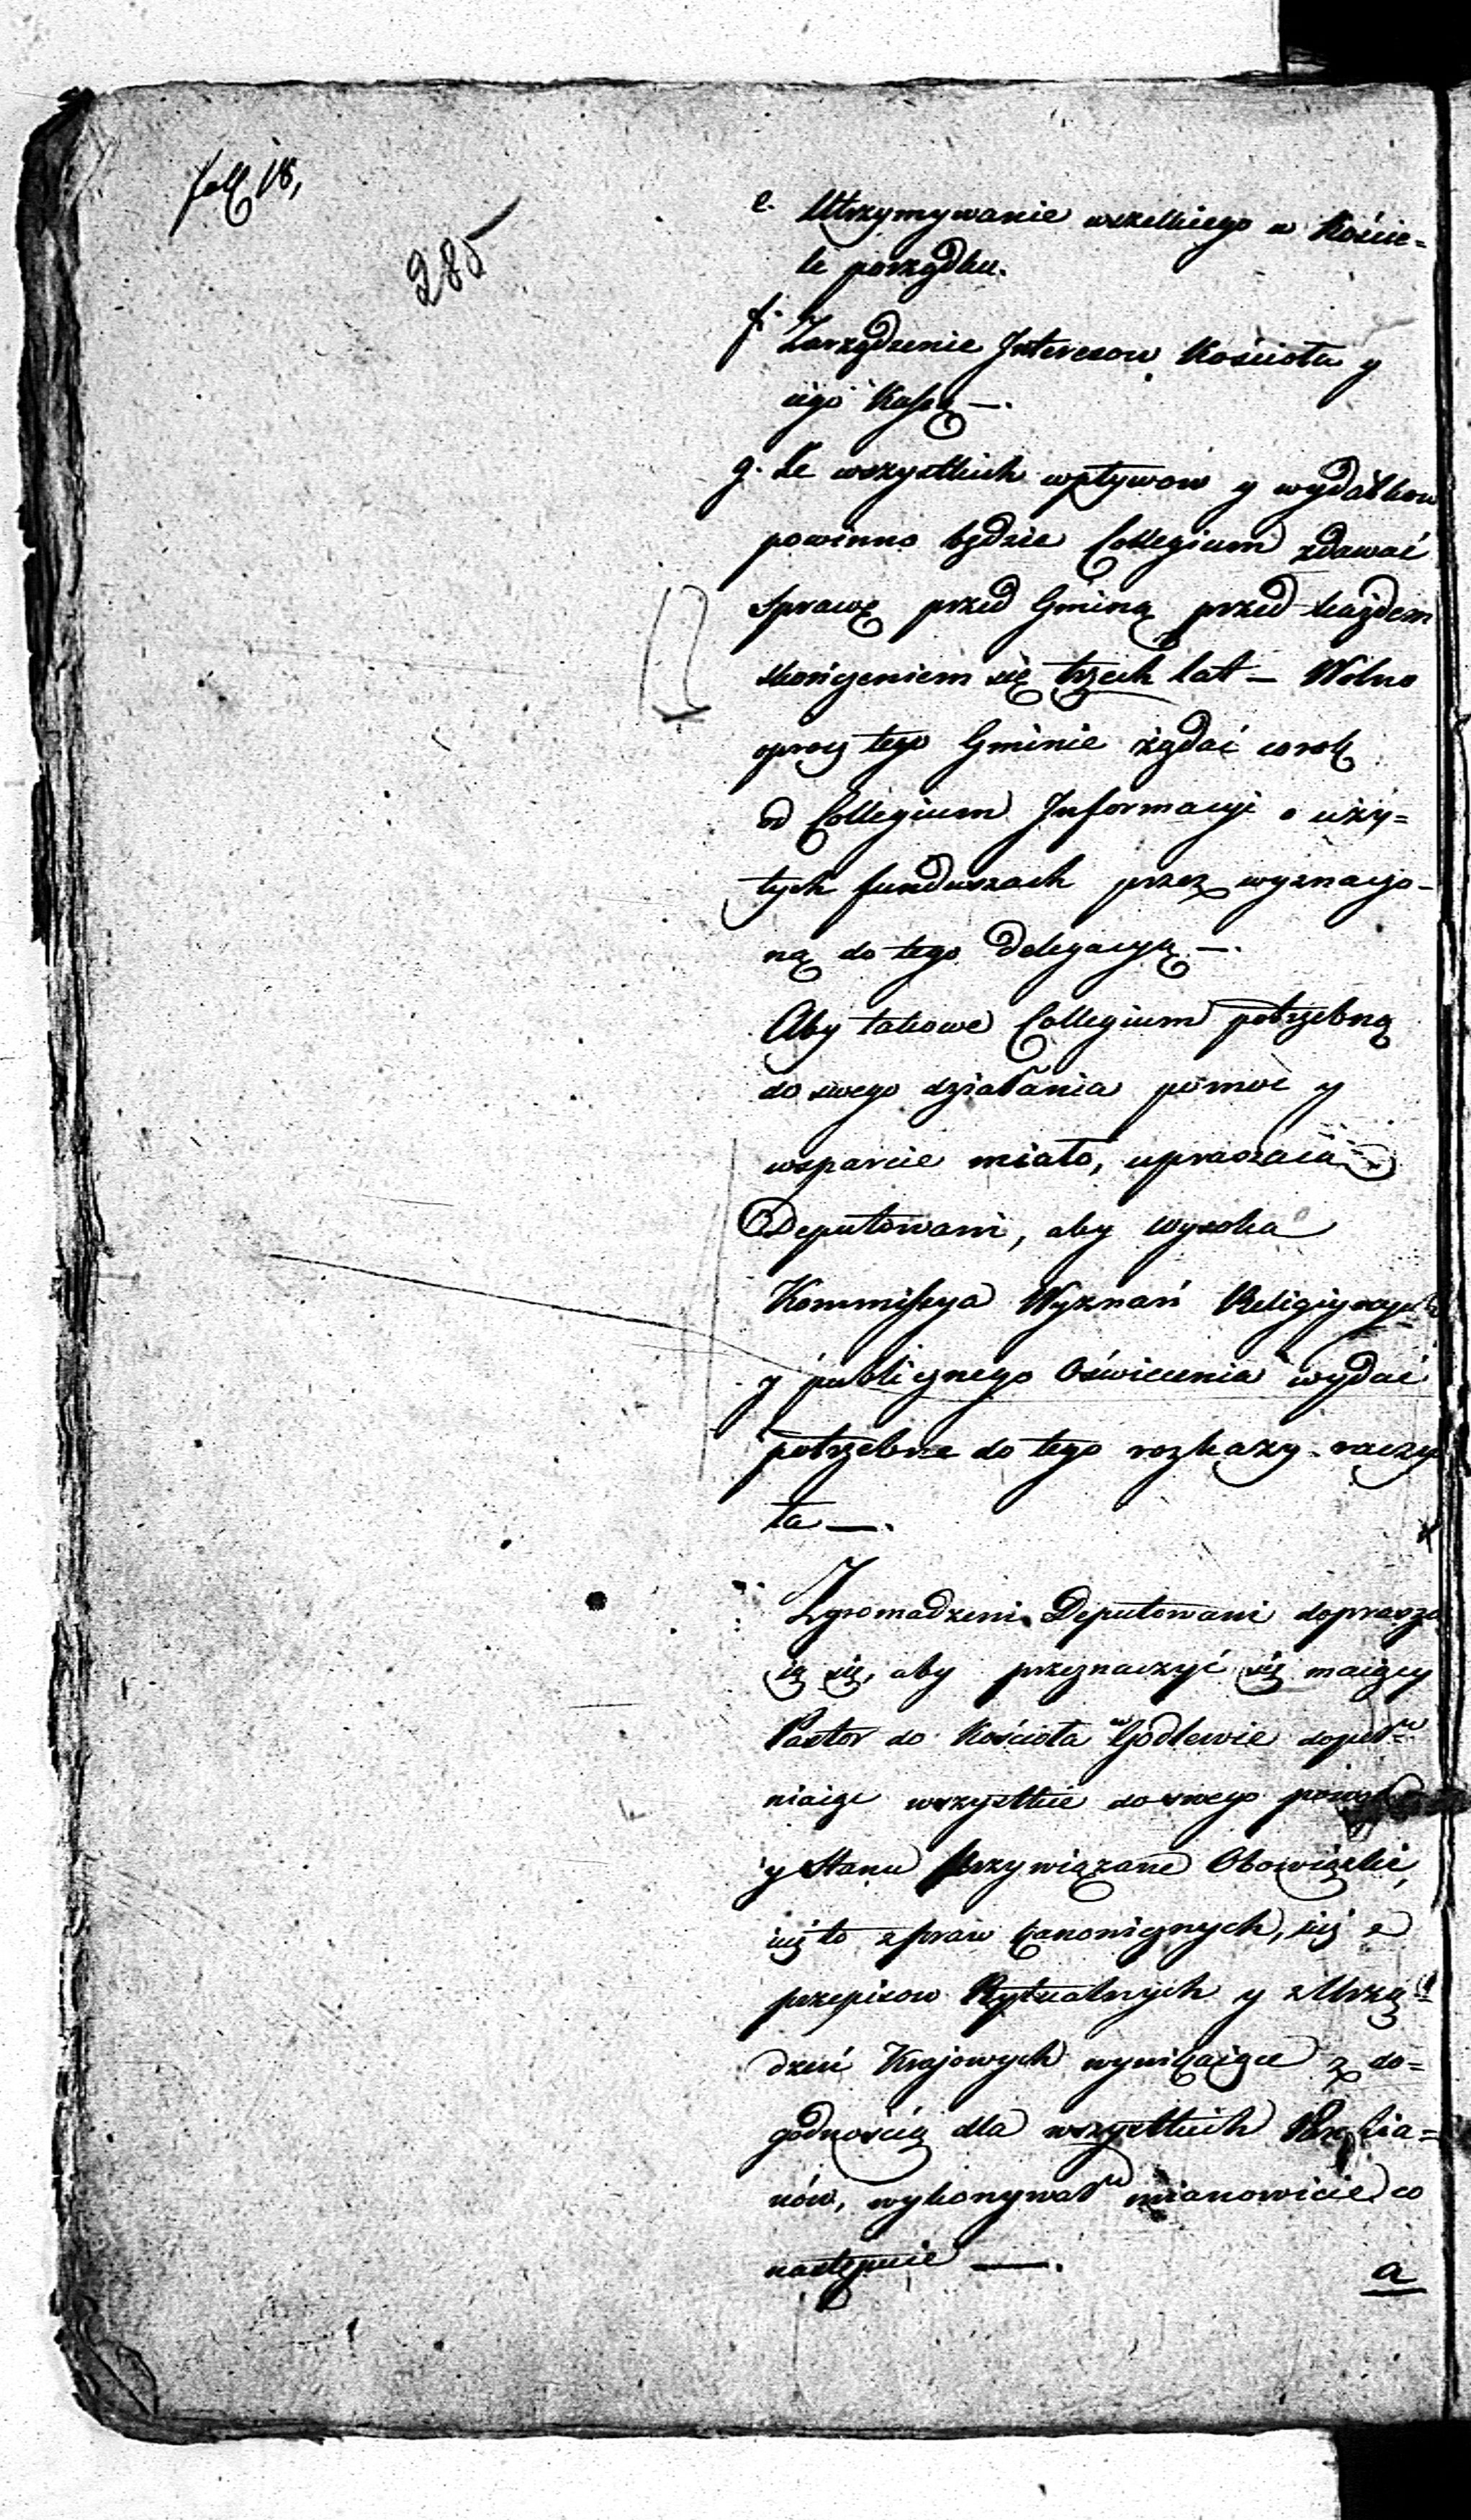 foll 18,
285
e. Utrzymywanie wszelkiego w Koście=
le porządku.
f. Zarządzenie Interesow Kościoła y
iego Kassą —.
g. Ze wszystkich wpływow y wydatkow
powinno będzie Collegium zdawać
sprawę przed Gminą przed każdem
skończeniem się trzech lat — Wolno
procz tego Gminie żądać corok
od Collegium Informacyi o uży=
tych funduszach przez wyznaczo-
ną do tego Delegacyą —.
Aby takowe Collegium potrzebną
do swego działania pomoc y
wsparcie miało, upraszaią
Deputowani, aby Wysoka
Kommissya Wyznań Religiynych
y publicznego Oświecenia wydać
potrzebne do tego rozkazy raczy
ła —.
Zgromadzeni Deputowani doprasza
ią się, aby przeznaczyć się maiący
Pastor do Kościoła w Godlewie dopeł=
niaiąc wszystkie do swego
y Stanu przywiązane Obowiązki,
iuż to z praw Canonicznych, iuż z
przepisow Rytualnych y z Urzą=
dzeń Krajowych wynikaiące z do=
godnością dla wszystkich Parafia=
nów, wykonywał mianowicie co
nastempuie —.
a